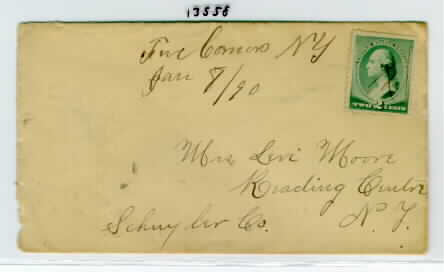 13558
Five Corners NY
Jan 8/90
TWO 2 CENTS
Mrs Levi Moore
Reading Center
Schuyler Co. N.Y.